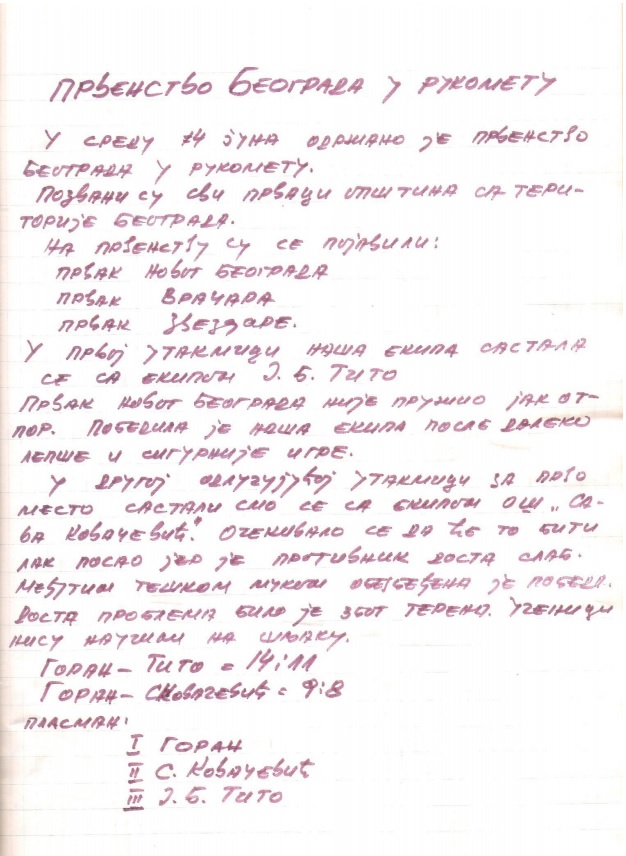 ПРВЕНСТВО БЕОГРАДА У РУКОМЕТУ
У СРЕДУ 14 ЈУНА ОДРЖАНО ЈЕ ПРВЕНСТВО
БЕОГРАДА У РУКОМЕТУ.
ПОЗВАНИ СУ СВИ ПРВАЦИ ОПШТИНА СА ТЕРИ-
ТОРИЈЕ БЕОГРАДА.
НА ПРВЕНСТВУ СУ СЕ ПОЈАВИЛИ:
ПРВАК НОВОГ БЕОГРАДА
ПРВАК ВРАЧАРА
ПРВАК ЗВЕЗДАРЕ.
У ПРВОЈ УТАКМИЦИ НАША ЕКИПА САСТАЛА
СЕ СА ЕКИПОМ Ј. Б. ТИТО
ПРВАК НОВОГ БЕОГРАДА НИЈЕ ПРУЖИО ЈАК ОТ-
ПОР. ПОБЕДИЛА ЈЕ НАША ЕКИПА ПОСЛЕ ДАЛЕКО
ЛЕПШЕ И СИГУРНИЈЕ ИГРЕ.
У ДРУГОЈ ОДЛУЧУЈУЋОЈ УТАКМИЦИ ЗА ПРВО
МЕСТО САСТАЛИ СМО СЕ СА ЕКИПОМ ОШ „СА-
ВА КОВАЧЕВИЋ". ОЧЕКИВАЛО СЕ ДА ЋЕ ТО БИТИ
ЛАК ПОСАО ЈЕР ЈЕ ПРОТИВНИК ДОСТА СЛАБ.
МЕЂУТИМ ТЕШКОМ МУКОМ ОБЕЗБЕЂЕНА ЈЕ ПОБЕДА.
ДОСТА ПРОБЛЕМА БИЛО ЈЕ ЗБОГ ТЕРЕНА. УЧЕНИЦИ
НИСУ НАУЧИЛИ НА ШЉАКУ.
ГОРАН – ТИТО = 14:11
ГОРАН – С КОВАЧЕВИЋ = 9:8
ПЛАСМАН:
I ГОРАН
II С. КОВАЧЕВИЋ
III Ј. Б. ТИТО